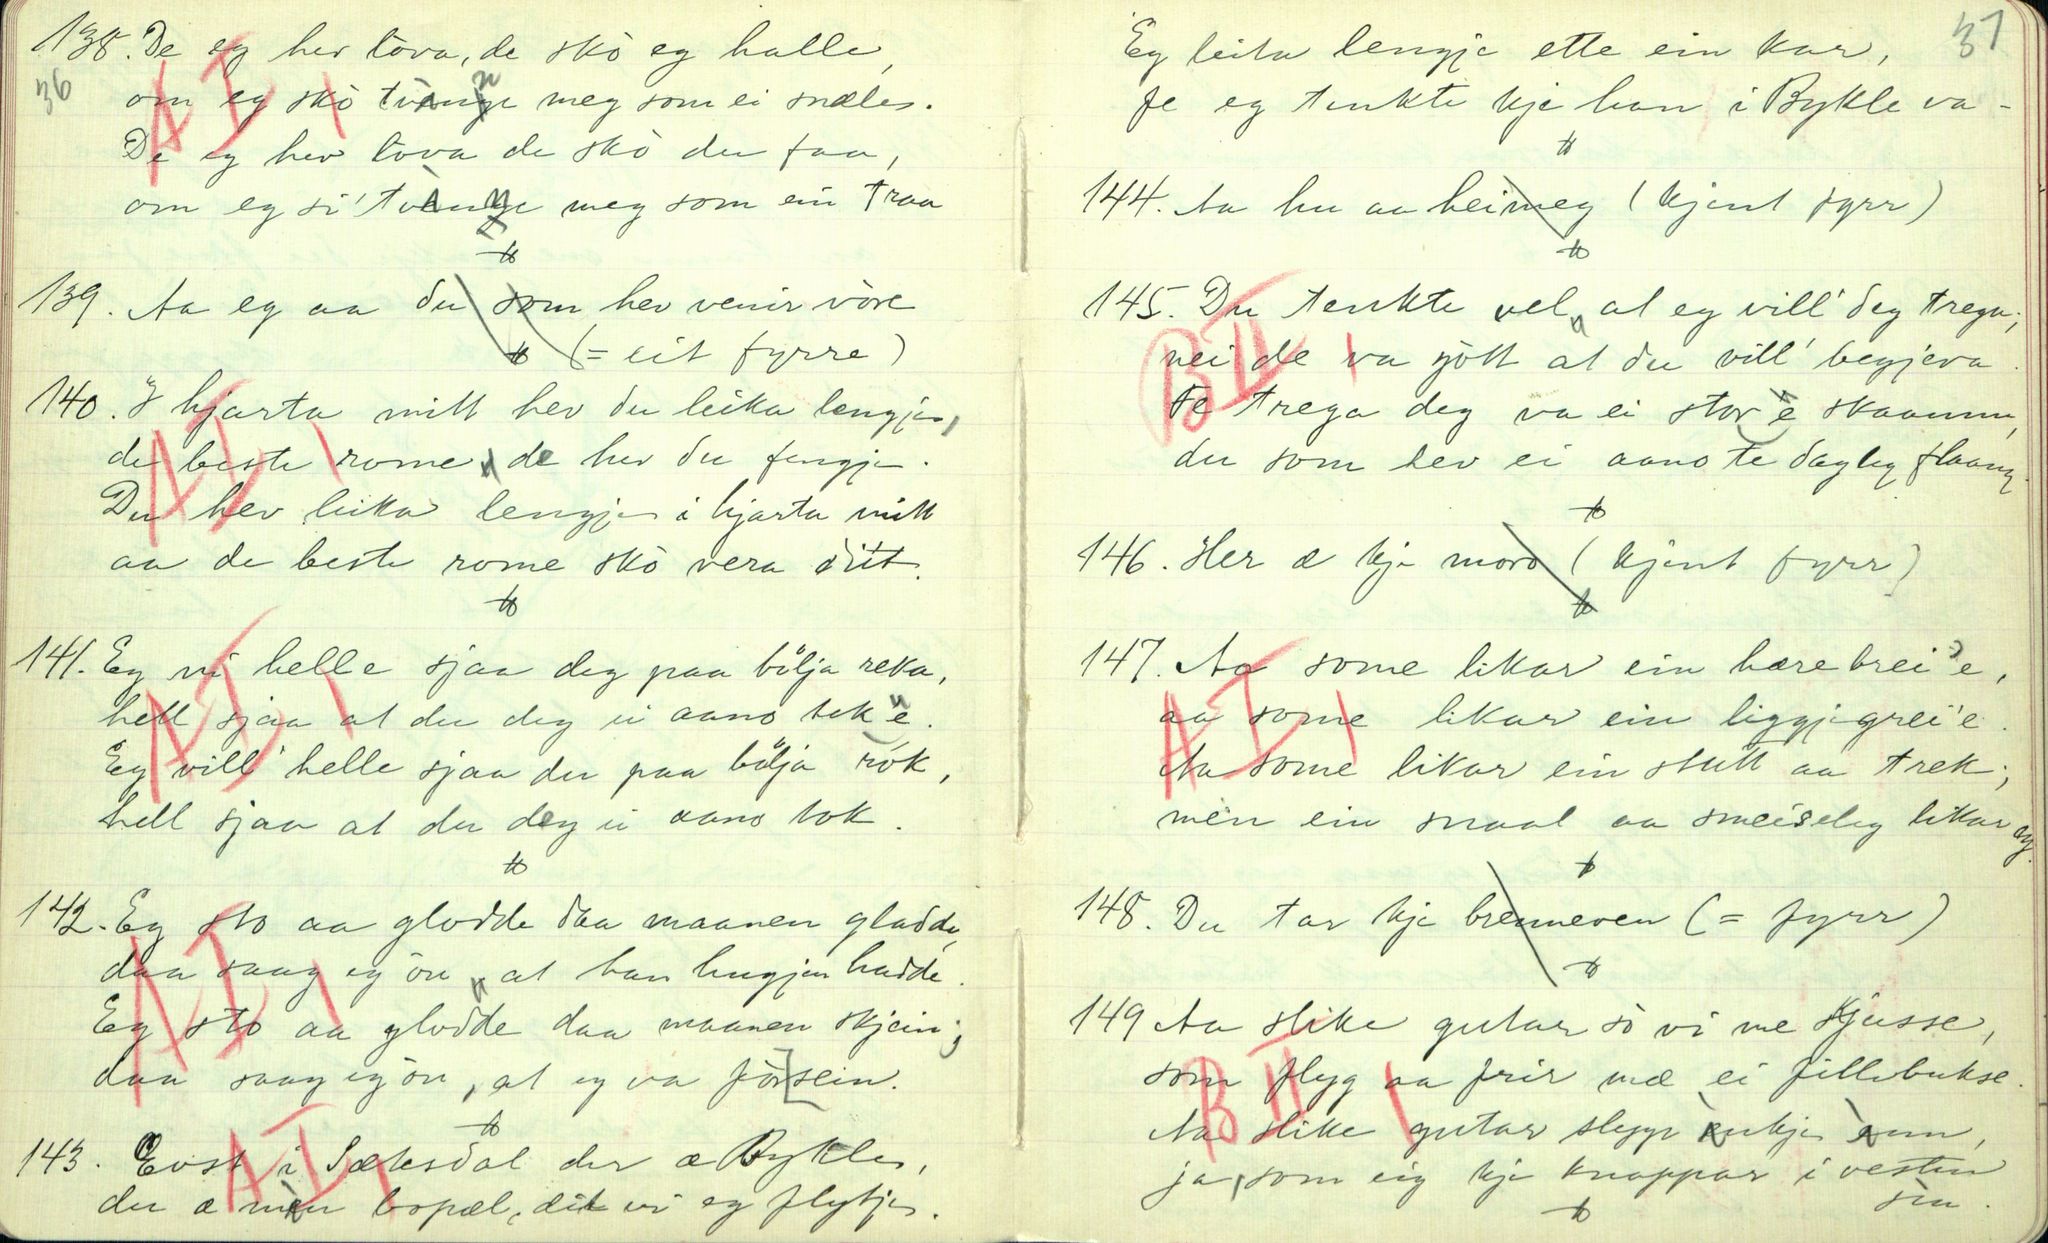 138. De eg hev lova, de skò eg halle,
36
om eg skò tvinge meg som ei snæle.
De eg hev lova de skò du faa,
om eg sò tvinge meg som ein traa
139. Aa eg aa du som hev venir vore
(= eit fyrre)
140. I hjarta mitt hev du leika lengje,
de beste rome, de hev du fengje.
Du hev leika lengje i hjarta mitt
aa de beste rome skò vera ditt.
141. Eg vi helle sjaa deg paa bölja reka,
hell sjaa at du deg ei aano teke.
Eg vill' helle sjaa du paa bölja rök,
hell sjaa at du deg ei aano tok.
142. Eg sto aa glodde daa maanen gladde,
daa saag eg òu, at han hugjen hadde.
Eg sto aa glodde daa maanen skjein;
daa saag eg òu, at eg va för sein.
143. Evst i Sætesdal der æ Bykle,
der æ min bopæl, dit vi eg flytje.
37
Eg leita lengje ette ein kar,
fe eg tenkte kje han i Bykle va -
144. Aa hu aa heimeg (kjent fyrr)
145. Du tenkte vel, at eg vill' deg trega;
nei de va gött at du vill' begjeva.
Fe trega deg va ei stor skaamm,
du som hev ei aano te dagleg flaang.
146. Her æ kje moro (kjent fyrr)
147. Aa some likar ein hære brei'e,
aa some likar ein liggjegrei'e.
Aa some likar ein stutt aa trek;
men ein smal aa smeiseleg likar eg.
148. Du tar kje brenneven (= fyrr)
149 Aa slike gutar sò vi me skjusse,
som flyg aa frir mæ ei fillebukse.
Aa slike gutar slepp enkje inn,
ja, som eig kje knappar i vesten
sin.